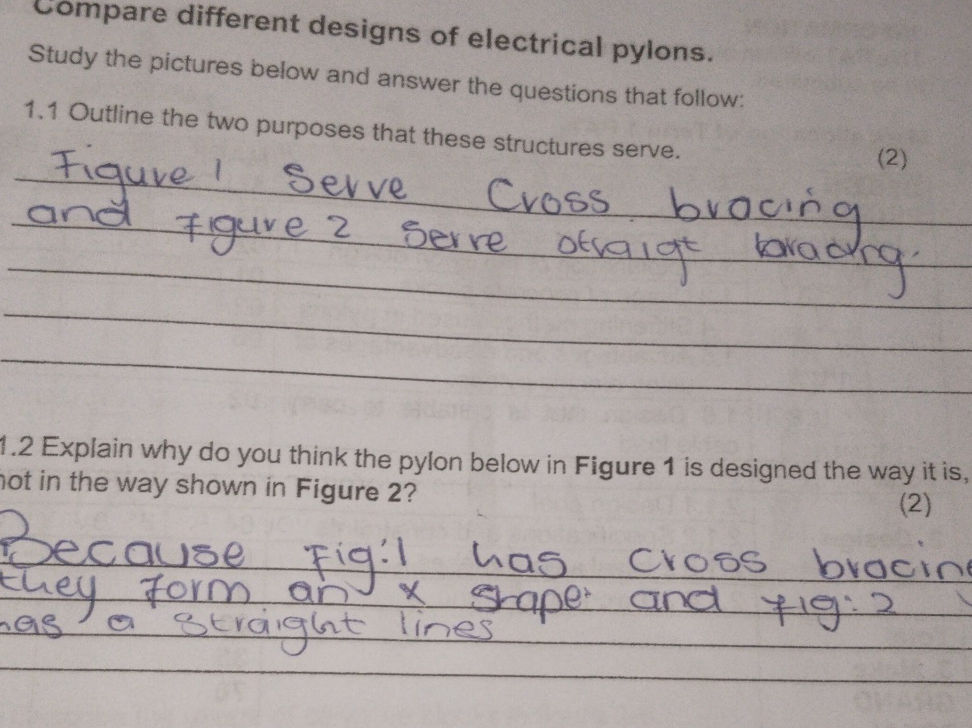 Compare different designs of electrical pylons.
Study the pictures below and answer the questions that follow:
1.1 Outline the two purposes that these structures serve.
(2)
Figure 1 Serve Cross bracing
and Figure 2 Serve straigt bracing.
1.2 Explain why do you think the pylon below in Figure 1 is designed the way it is,
not in the way shown in Figure 2?
(2)
Because Fig:1 has cross bracing
they form an x shape. and Fig:2
has a straight lines